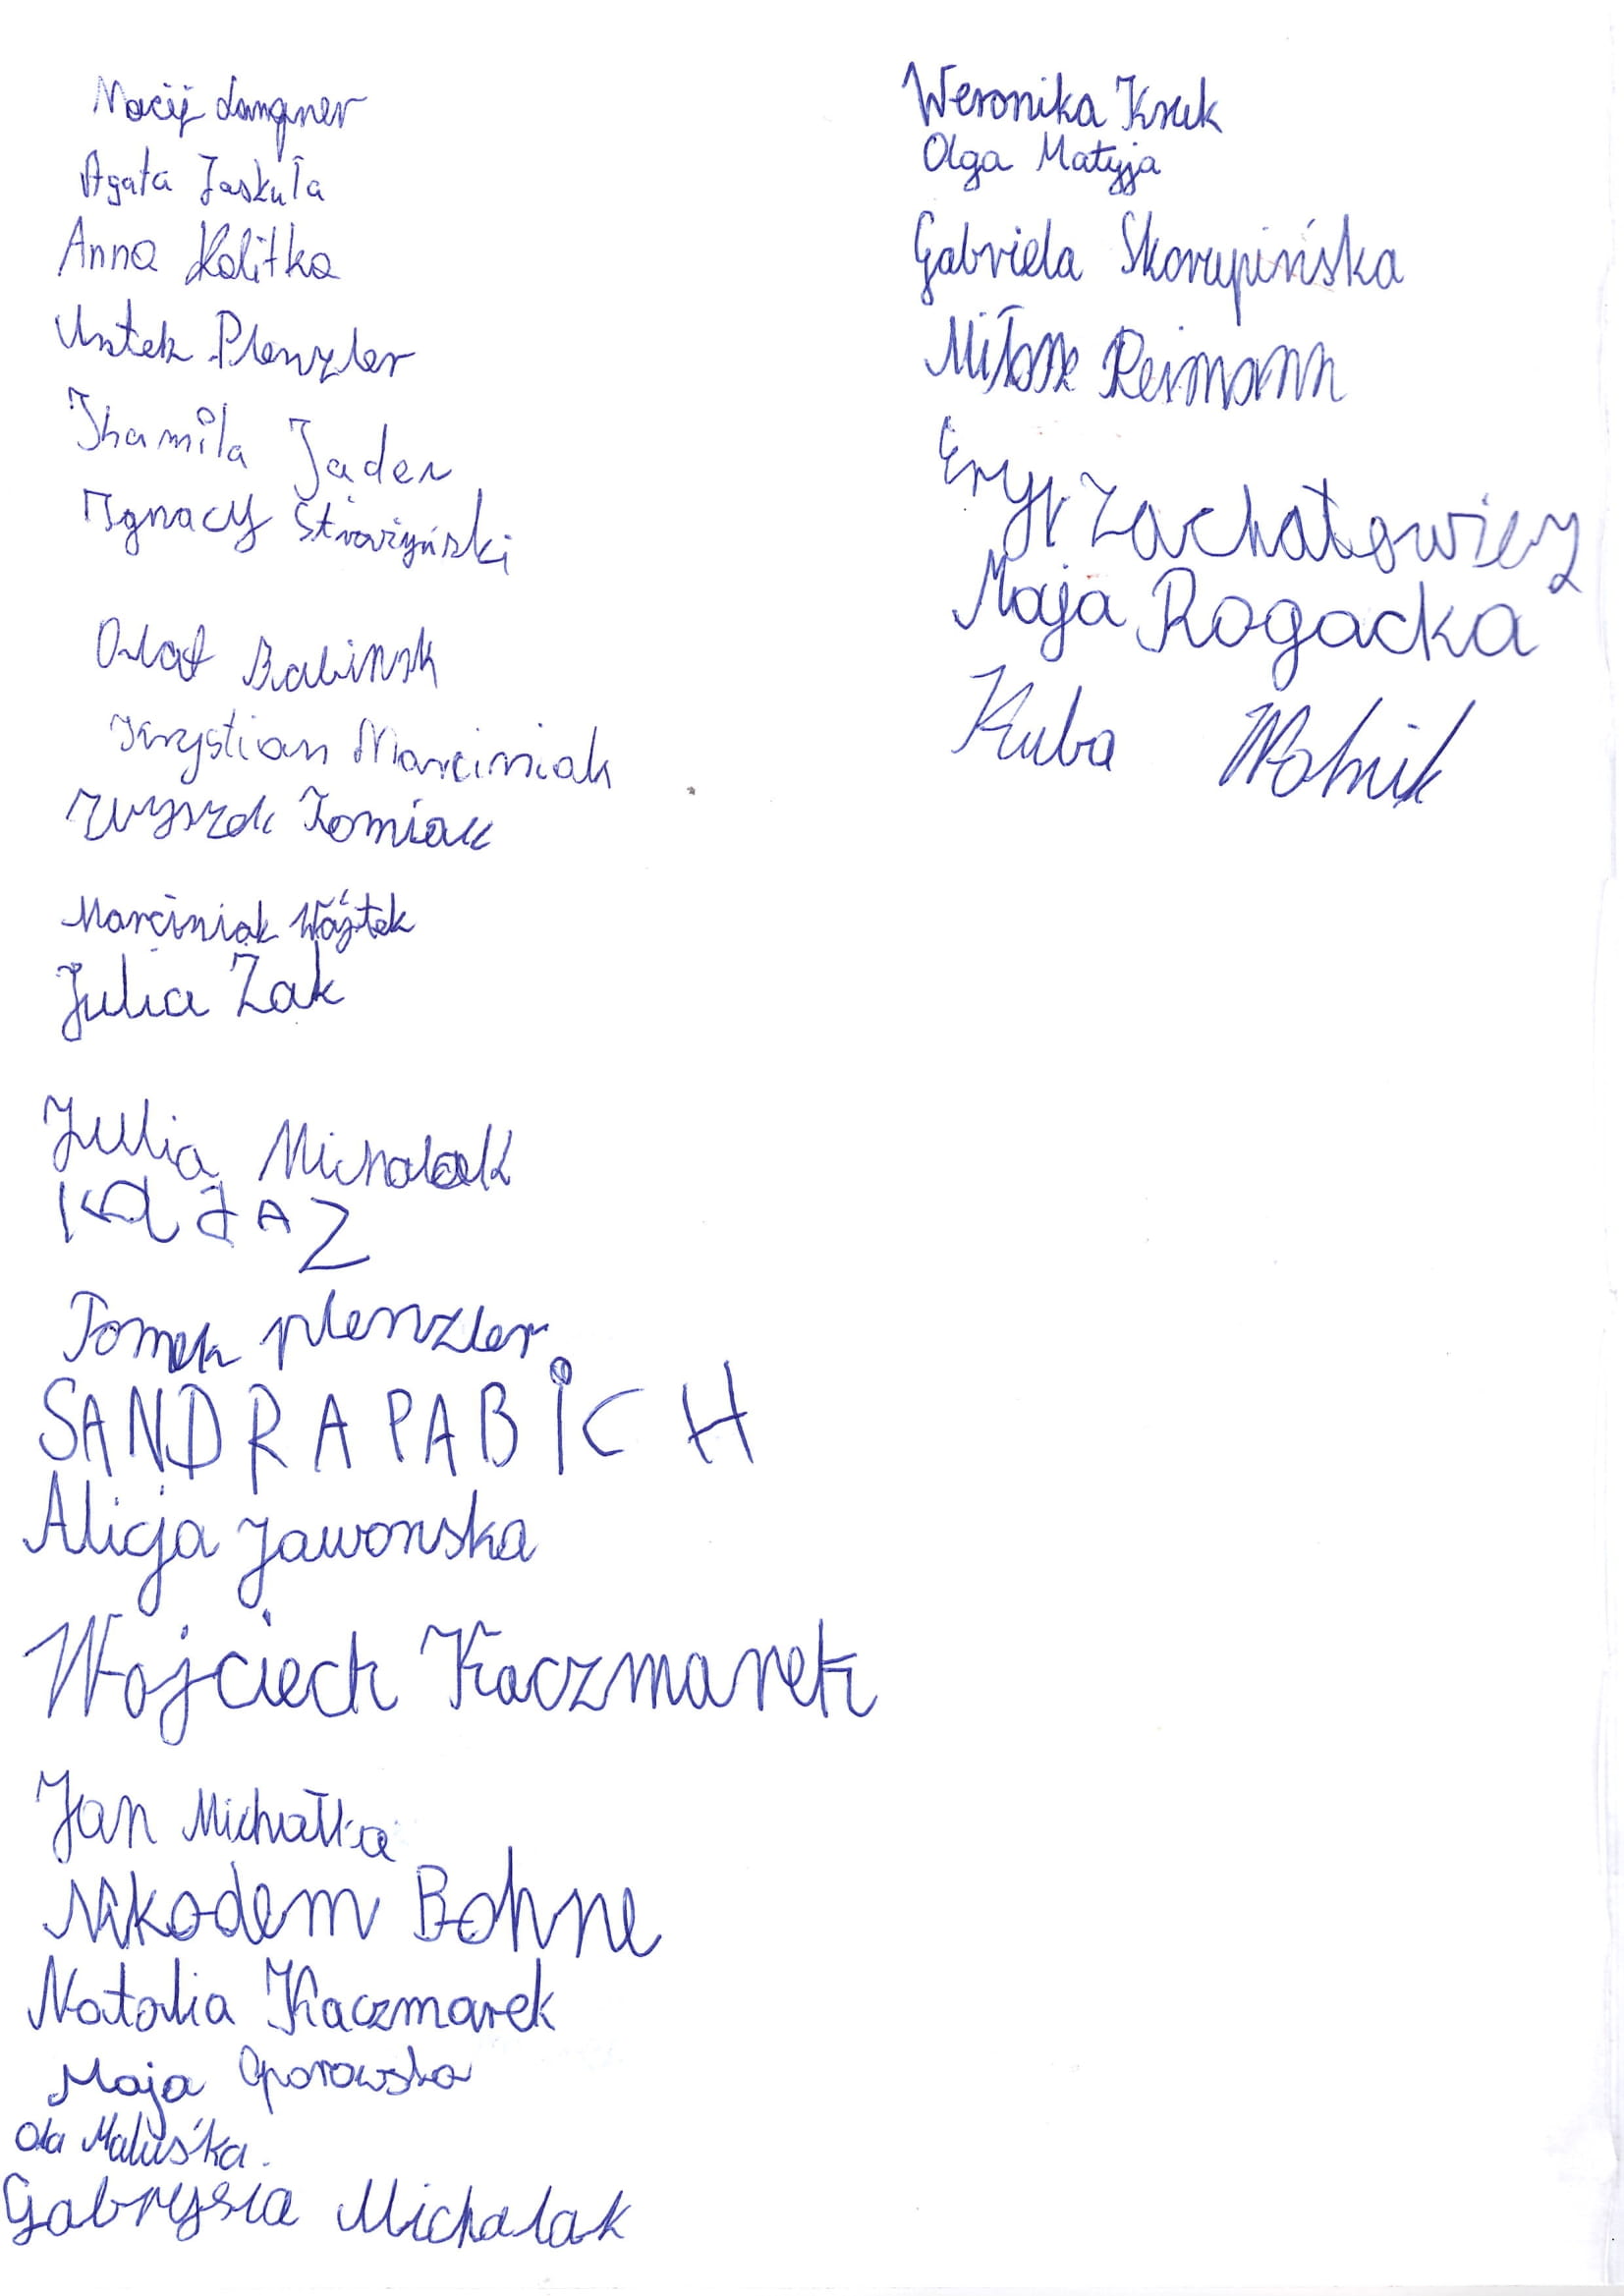 Maciej Langner
Agata Jaskuła
Anna Kolitka
Plenzler
Kamila Jader
Ignacy
Krystian Marciniak
Zbyszek Tomiak
Marciniak Wójtek
Julia Żak
Julia Michalak
Tomek plenzler
SANDRA PABICH
Alicja Jaworska
Wojciech Kaczmarek
Jan Michałka
Nikodem Bohne
Natalia Kaczmarek
Maja Oporowska
Ola Maluśka.
Gabrysia Michalak
Weronika Kruk
Olga Matyja
Gabriela Skorupińska
Miłosz Reimann
Eryk Zachatowicz
Maja Rogacka
Kuba Wolnik